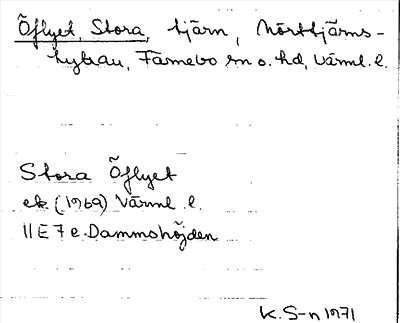 Öflyet, Stora, tjärn, Mörttjärns-
hyttan, Färnebo sn o. hd, Värml. l.
Stora Öflyet
ek (1969) Värml. l.
11E 7 e. Dammshöjden
K. S-n 1971